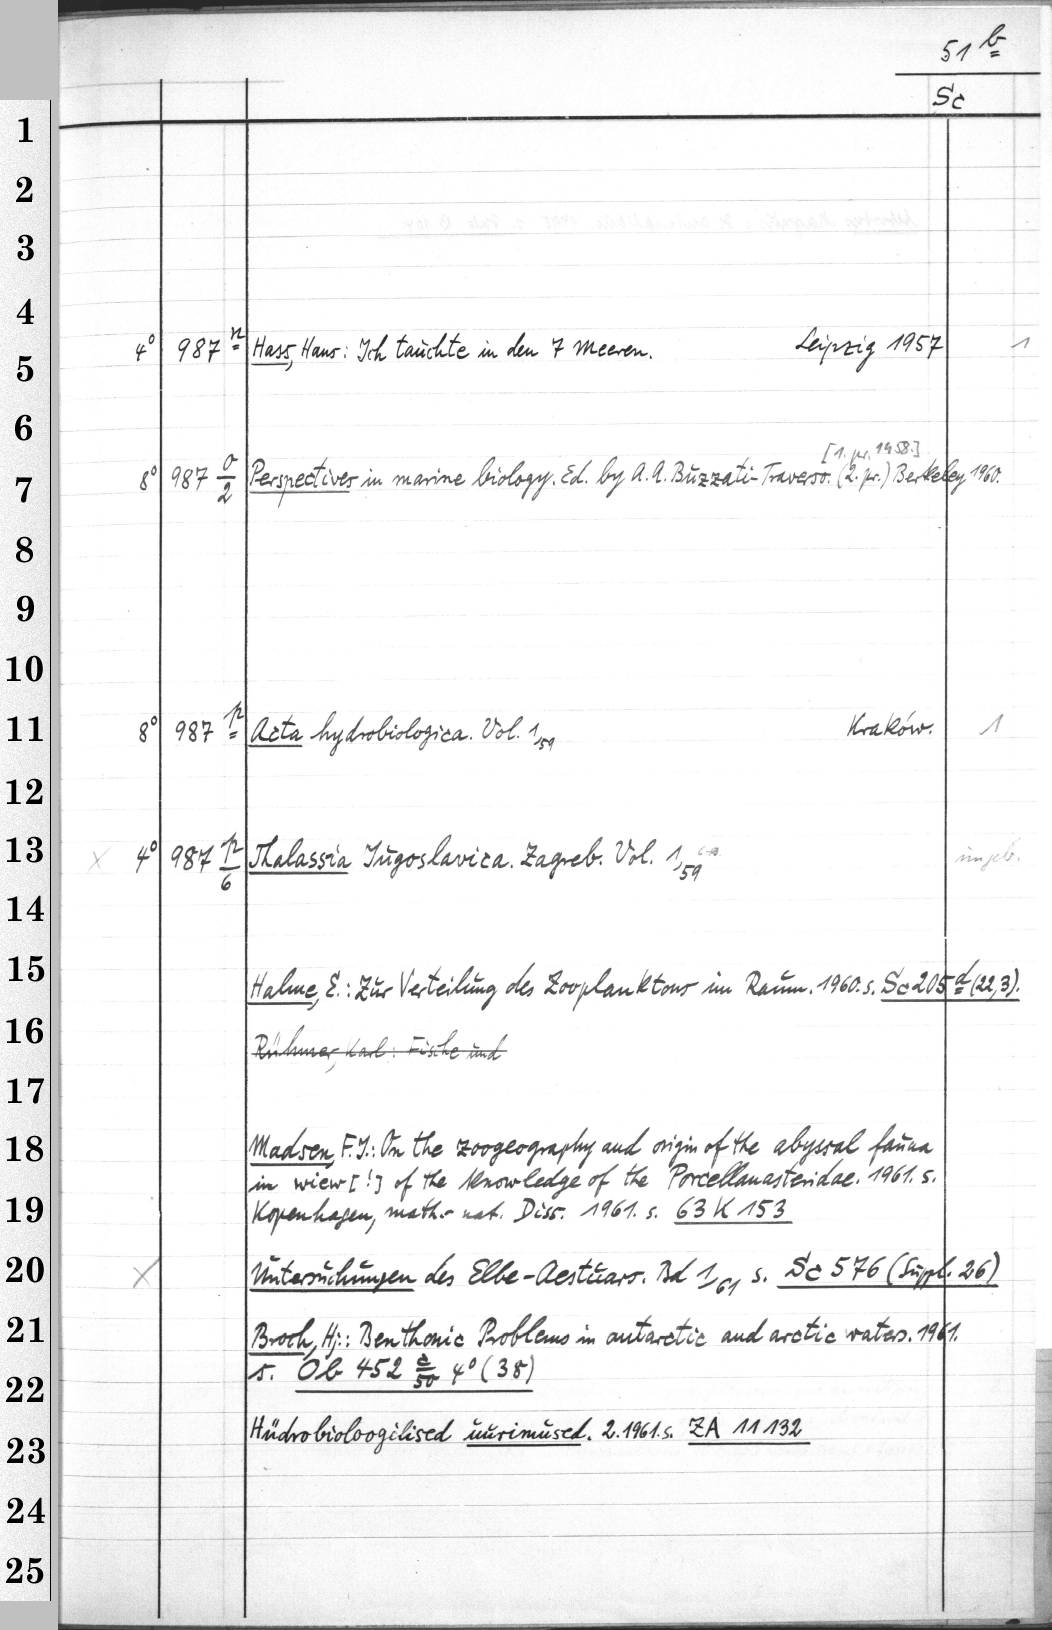 51 b
Sc
1
2
3
4
4° 987 n Hass, Hans: Ich tauchte in den 7 Meeren. Leipzig 1957 1
5
6
[1. pr. 1958.]
8° 987 o/2 Perspectives in marine biology. Ed. by A. A. Buzzati-Traverso. (2. pr.) Berkeley 1960.
7
8
9
10
11 8° 987 p Acta hydrobiologica. Vol. 1,59 Kraków. 1
12
13 x 4° 987 p/6 Thalassia Jugoslavica. Zagreb. Vol. 1,59 ungeb.
14
15 Halme, E.: Zür Verteilung des Zooplanktons im Raum. 1960. s. Sc 205 d (22,3).
16 Rühmer, Karl: Fische und
17
18 Madsen, F. J.: On the zoogeography and origin of the abyssal fauna
in wiew [!] of the knowledge of the Porcellanasteridae. 1961. s.
19 Kopenhagen, math.-nat. Diss. 1961. s. 63 K 153
20 x Untersuchungen des Elbe-Aestuars. Bd 1,61 s. Sc 576 (Suppl. 26)
21 Broch, Hj.: Benthonic Problems in antarctic and arctic waters. 1961.
22 s. Ob 452 c/50 4° (38)
23 Hüdrobioloogilised uurimused. 2. 1961. s. ZA 11132
24
25